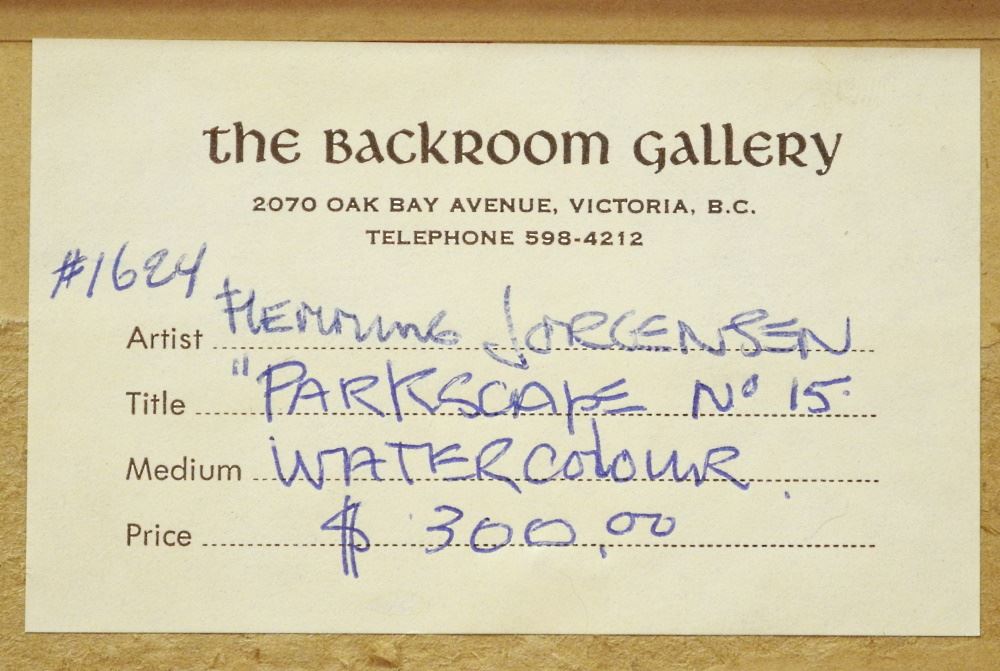 the Backroom Gallery
2070 OAK BAY AVENUE, VICTORIA, B.C.
TELEPHONE 598-4212
#1624
Artist FLEMMING JORGENSEN
Title "PARKSCAPE Nº 15
Medium WATERCOLOUR.
Price $300.00